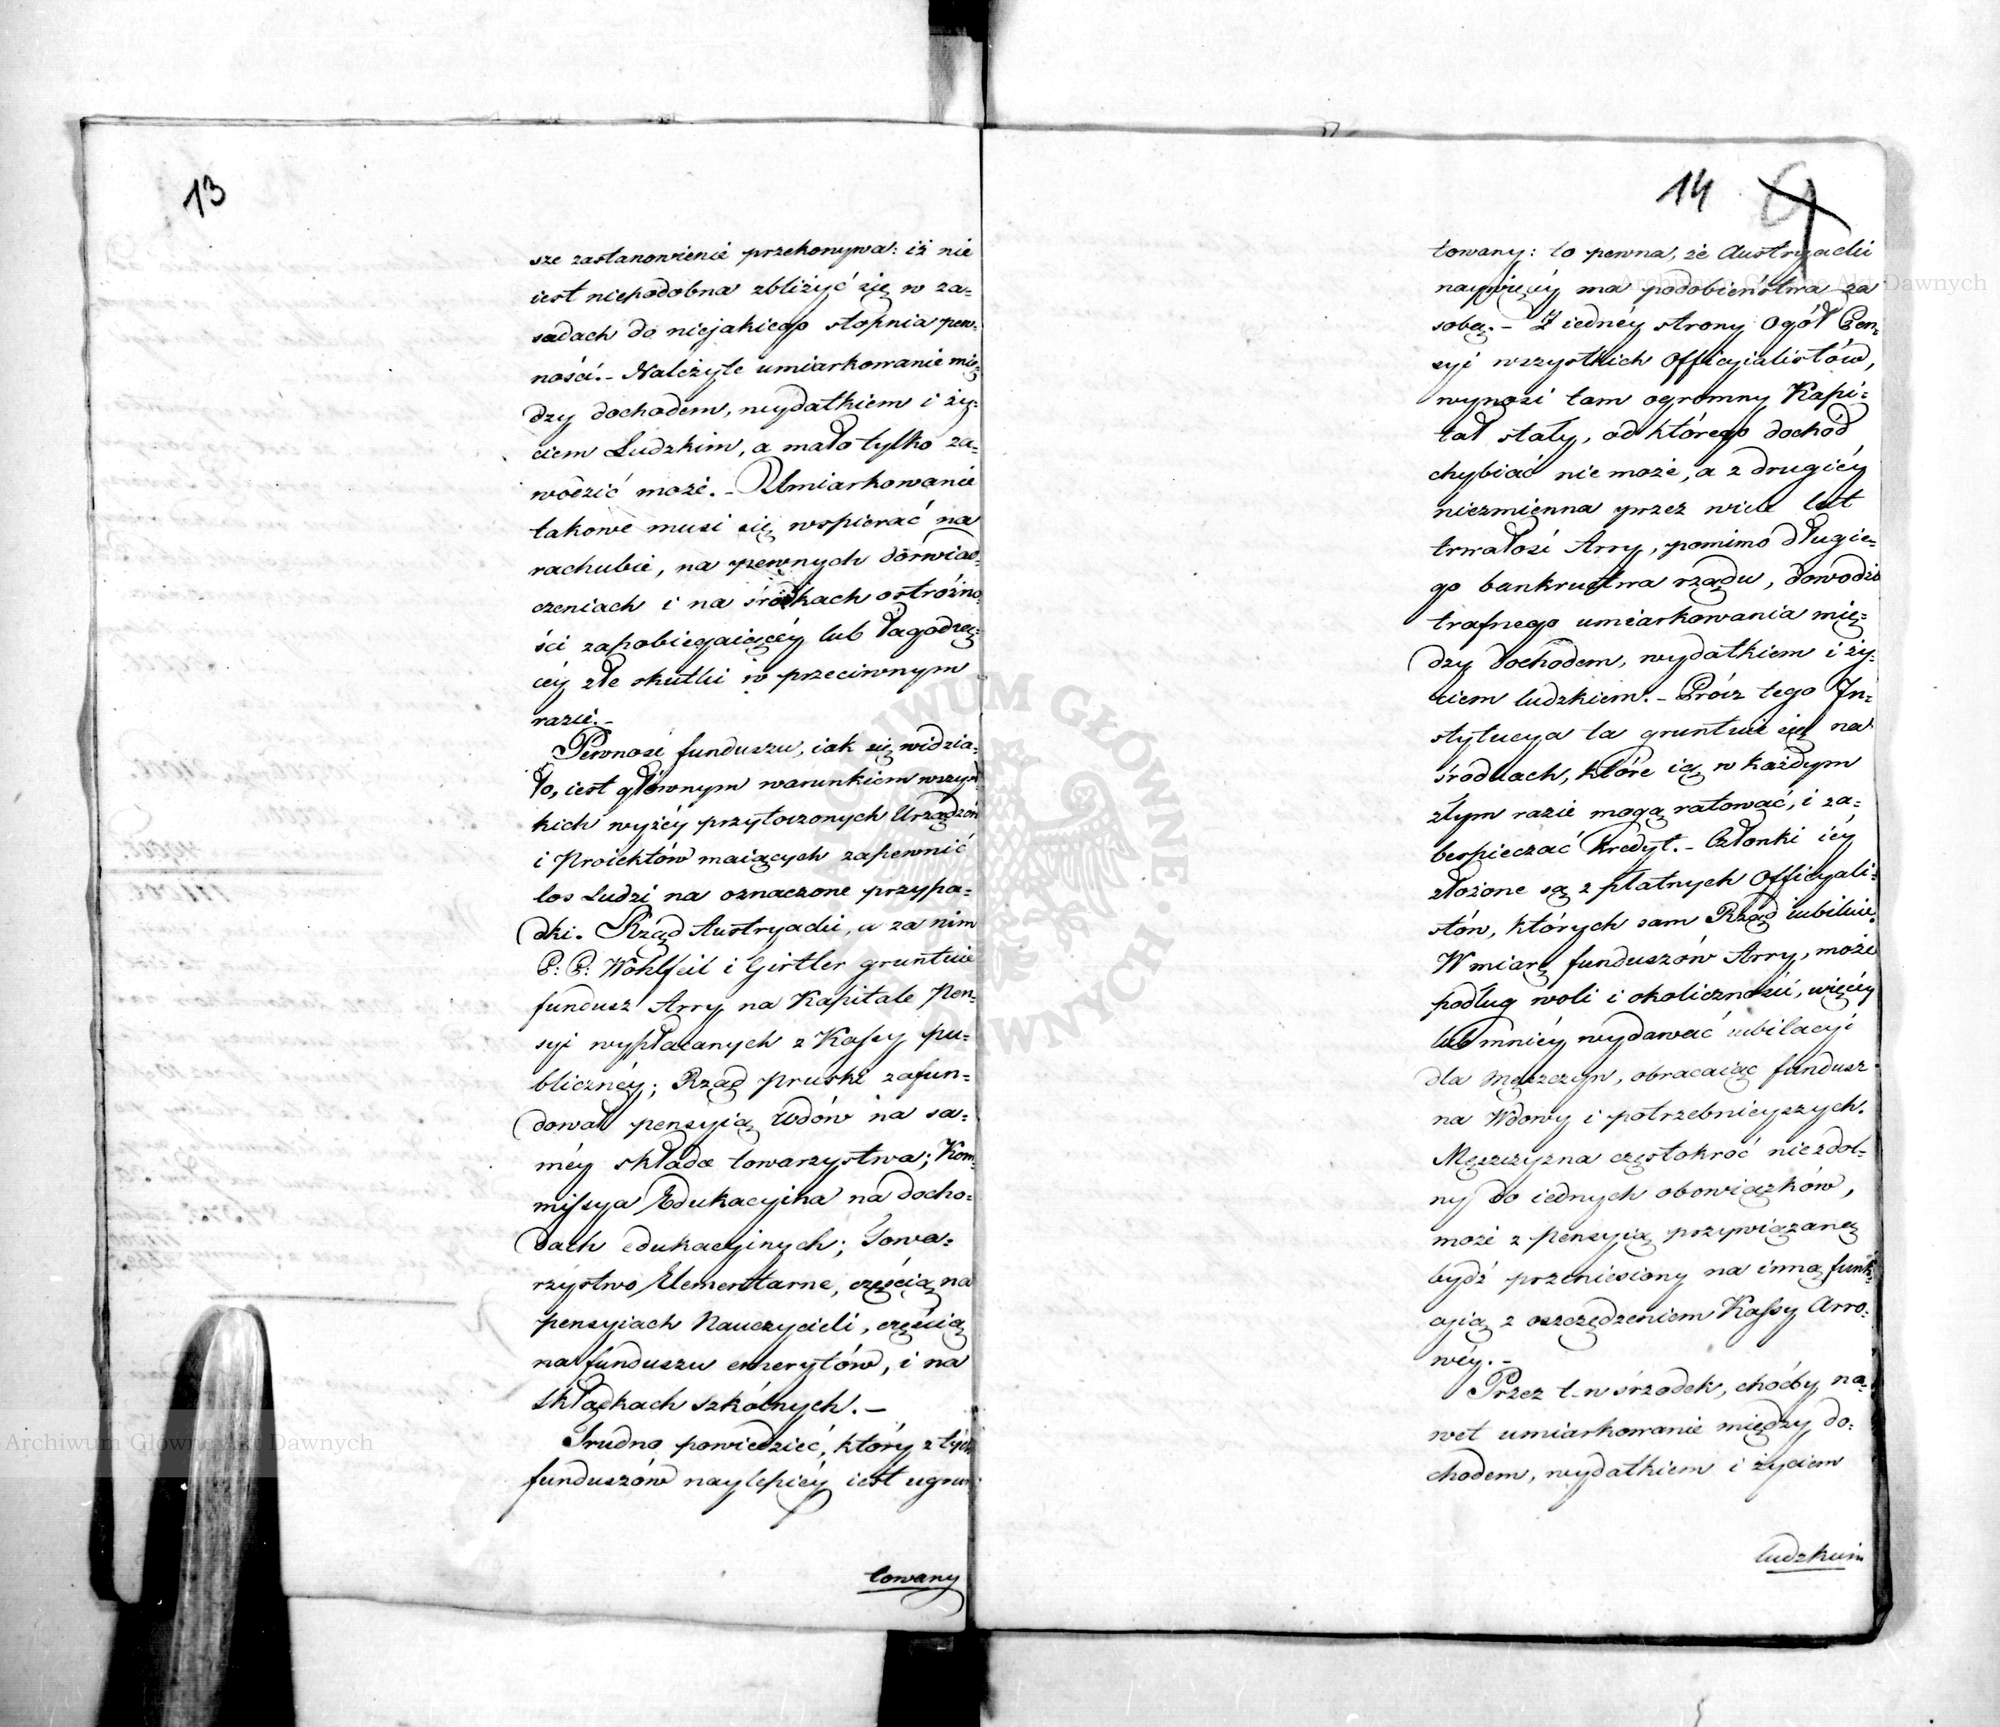 13
sze zastanowienie przekonywa: iż nie
iest niepodobna zbliżyć się w za=
sadach do niejakiego stopnia pew=
ności. - Należyte umiarkowanie mię=
dzy dochodem, wydatkiem i ży=
ciem Ludzkim, a mało tylko za=
wodzić może. - Umiarkowanie
takowe musi się wspierać na
rachubie, na pewnych doświad=
czeniach i na środkach ostróżno=
ści zapobiegaiącéy lub łagodzą=
céy złe skutki w przeciwnym
razie. -
Pewność funduszu, iak się widzia=
ło, iest głównym warunkiem wszyst=
kich wyżéy przytoczonych Urządzeń
i Proiektów maiących zapewnić
los Ludzi na oznaczone przypa=
dki. Rząd Austryacki, a za nim
P: P: Wohlfeil i Girtler gruntuie
fundusz Arry na Kapitale Pen=
syi wypłacanych z Kassy pu=
blicznéy; Rząd pruski zafun=
dował pensyią Wdów na sa=
méy składce towarzystwa; Kom=
missya Edukacyina na docho=
dach edukacyinych; Towa=
rzystwo Elementarne, częścią na
pensyiach Nauczycieli, częścią
na funduszu emerytów, i na
składkach szkólnych. -
Trudno powiedzieć, który z tych
funduszów naylepiéy iest ugrun=
towany
14
towany: to pewna, że Austryacki
naywięcéy ma podobieństwa za
sobą. - Z iednéy strony Ogół Pen=
syi wszystkich Officyialistów,
wynosi tam ogromny Kapi=
tał stały, od którego dochód
chybiać nie może, a z drugiéy
niezmienna przez wiele lat
trwałość Arry, pomimo długie=
go bankructwa rządu, dowodzi
trafnego umiarkowania mię=
dzy dochodem, wydatkiem i ży=
ciem ludzkiem. - Prócz tego In=
stytucya ta gruntuie się na
środkach, które ią w każdym
złym razie mogą ratować, i za=
bespieczać kredyt. - Członki iéy
złożone są z płatnych Officyali=
stów, których sam Rząd iubiluie.
W miarę funduszów Arry, może
podług woli i okoliczności, więcéy
lub mniéy wydawać iubilacyi
dla Męszczyzn, obracaiąc fundusz
na Wdowy i potrzebnieyszych.
Męszczyzna częstokroć niezdol=
ny do iednych obowiązków,
może z pensyią przywiązaną
bydź przeniesiony na inną funk=
cyią z oszczędzeniem Kassy Arro=
wéy. -
Przez ten śrzodek, choćby na=
wet umiarkowanie między do=
chodem, wydatkiem i życiem
ludzkiem